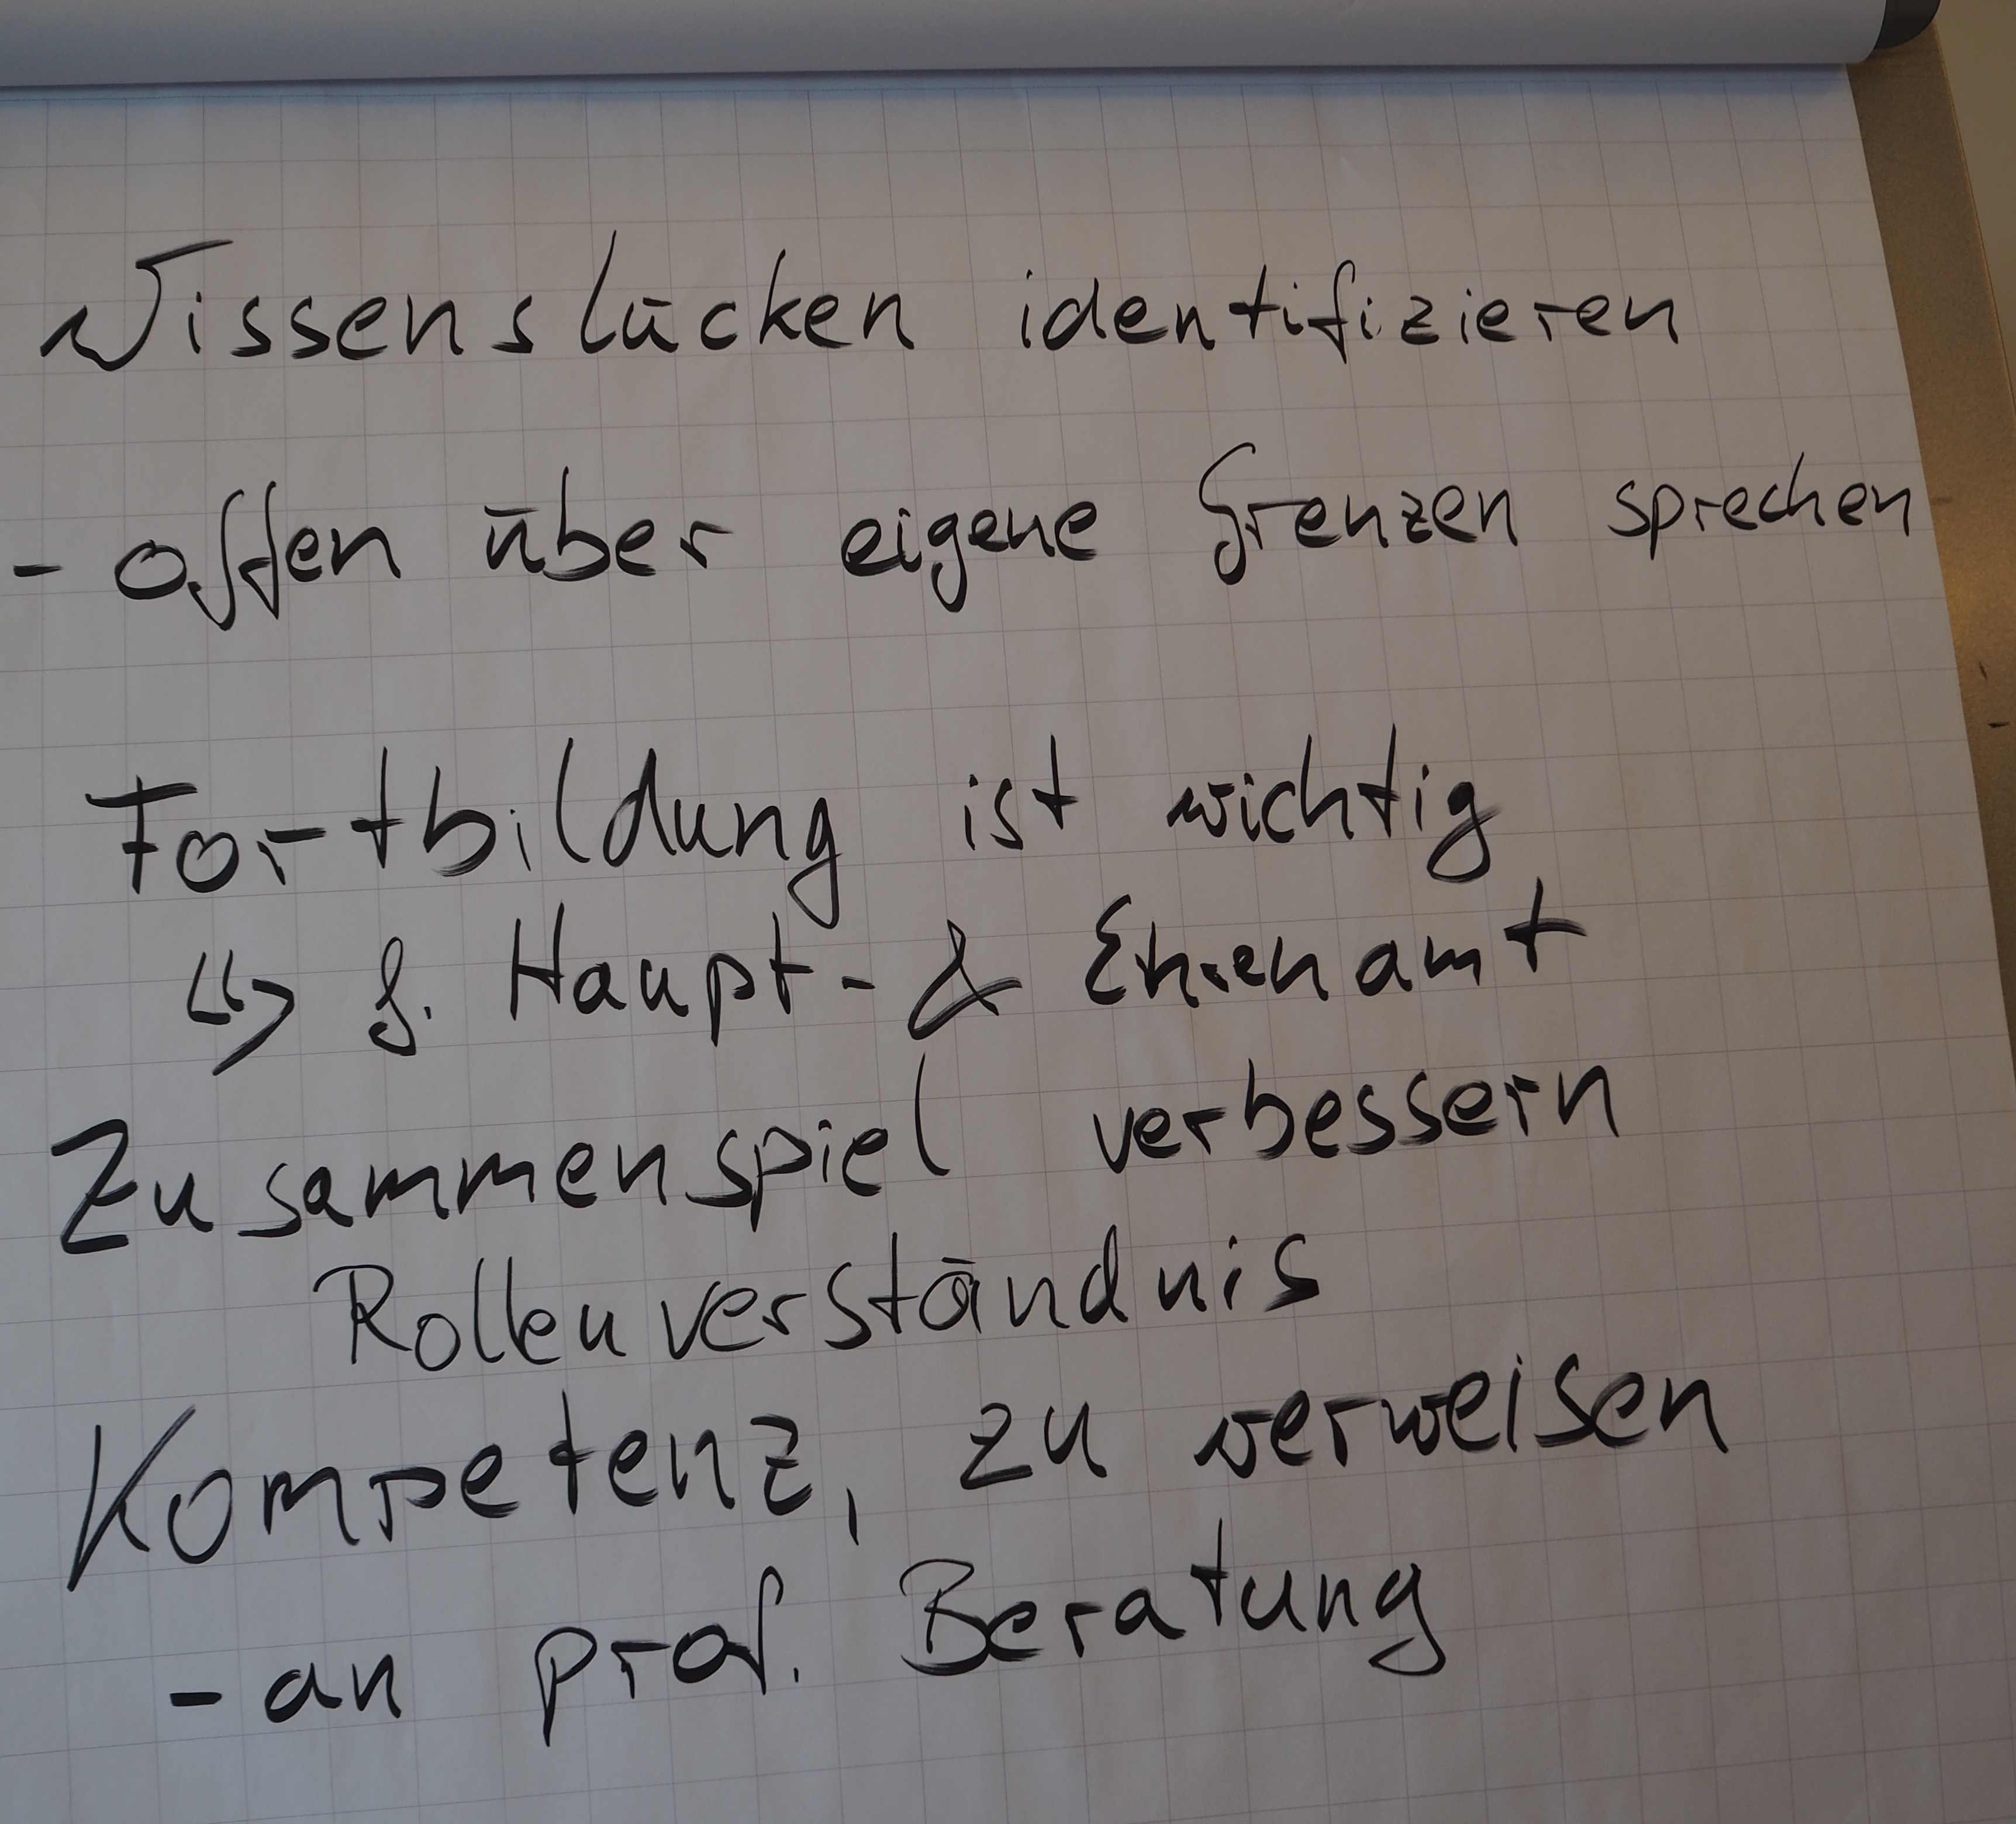 Wissenslücken identifizieren
- offen über eigene Grenzen sprechen
Fortbildung ist wichtig
↳> f. Haupt- & Ehrenamt
Zusammenspiel verbessern
Rollenverständnis
Kompetenz, zu verweisen
- an prof. Beratung